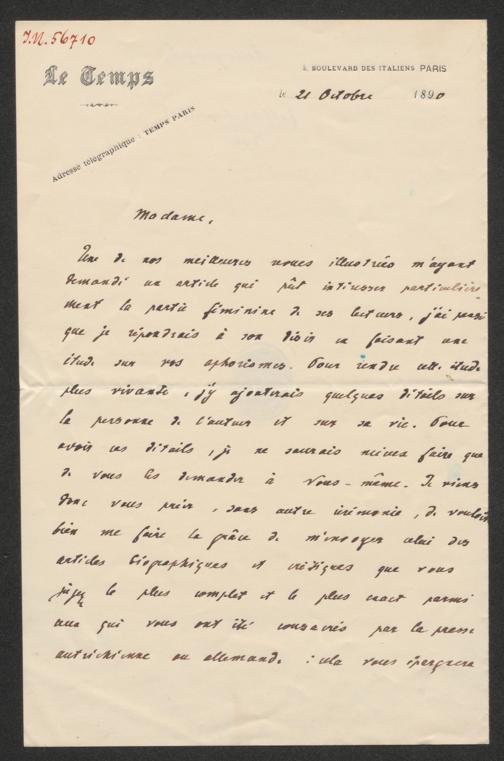 I.N. 56710
Le Temps
5, BOULEVARD DES ITALIENS PARIS
le 21 Octobre 1890
Adresse télégraphique : TEMPS PARIS
Madame,
Une de nos meilleures revues illustrées m'ayant
demandé un article qui pût intéresser particulière
ment la partie féminine de ses lecteurs, j'ai pensé
que je répondrais à son désir en faisant une
étude sur vos aphorismes. Pour rendre cette étude
plus vivante, j'y ajouterais quelques détails sur
la personne de l'auteur et sur sa vie. Pour
avoir ces détails, je ne saurais mieux faire que
de vous les demander à vous-même. Je viens
donc vous prier, sans autre cérémonie, de vouloir
bien me faire la grâce de m'envoyer celui des
articles biographiques et critiques que vous
jugez le plus complet et le plus exact parmi
ceux qui vous ont été consacrés par la presse
autrichienne ou allemande : cela vous épargnera